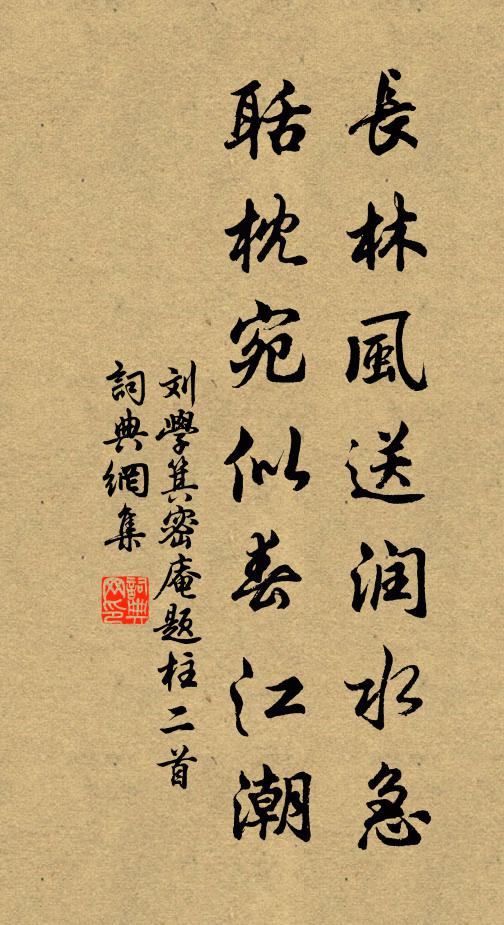 長林風送润水急
聒枕宛似春江潮
刘學箕密庵題柱二首
詞典網集
詞典网印